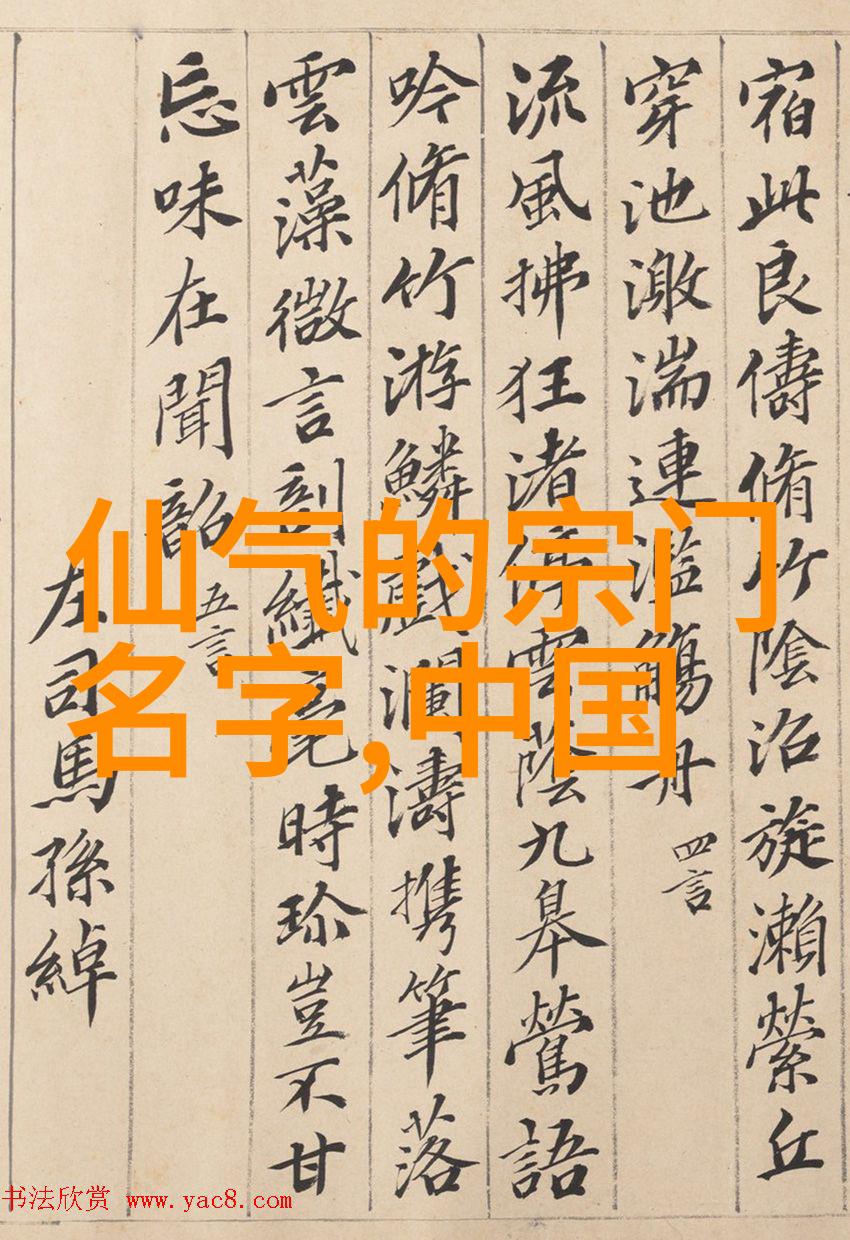 宿此良儔脩竹陰沼旋瀨縈丘
穿池激湍連濫觴舟
四言
流風拂狂渚停雲蔭九皋鶯語
吟脩竹游鱗戲瀾濤攜筆落
雲藻微言剖纖毫時珍豈不甘
忘味在聞韶
五言
左司馬孫綽
仙气的宗门
名字,中国
书法欣赏 www.yac8.com